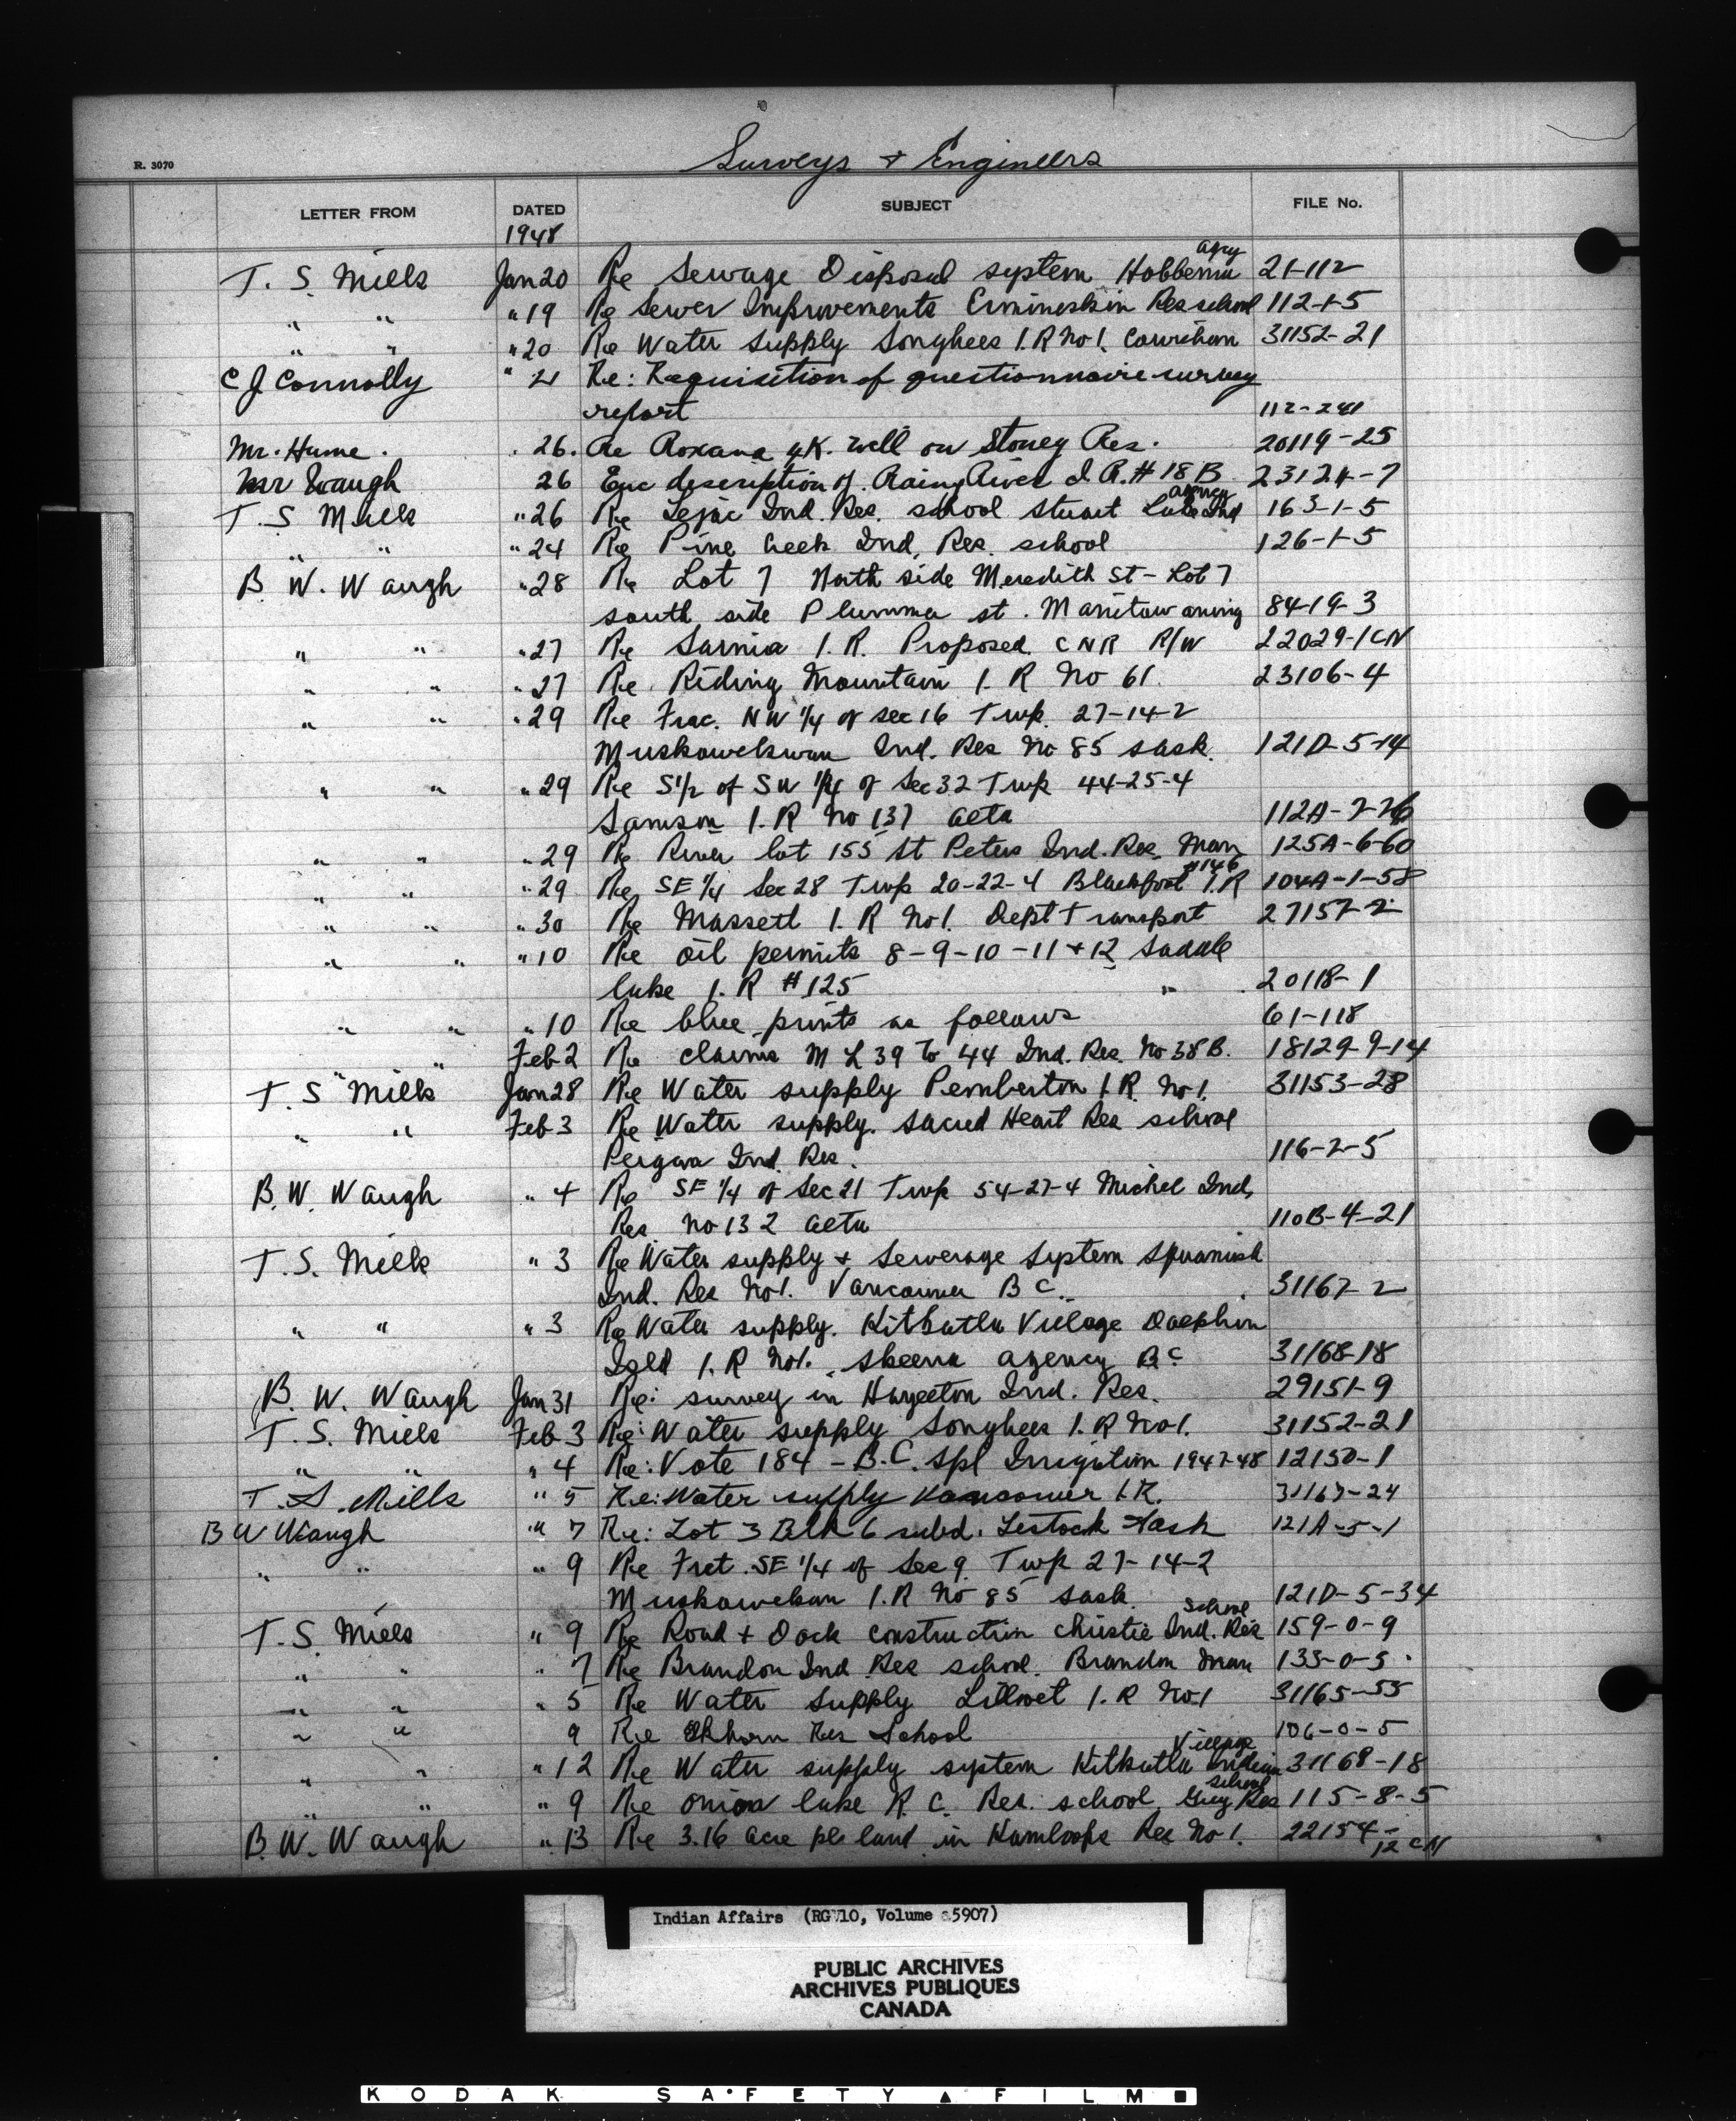 Surveys + Engineers
R. 3070
LETTER FROM DATED SUBJECT FILE No.
1948
Agcy
T. S. Mills Jan 20 Re Sewage Disposal system Hobbema 21-112
" " " 19 Re Sewer Improvements Ermineskin Res school 112-1-5
" " " 20 Re Water Supply Songhees I.R No 1. Cowichan 31152-21
C J Connolly " 21 Re: Requisition of questionnaire survey
report 112-241
Mr. Hume. " 26. Re Roxana 4K. well on Stoney Res. 20119-25
Mr Waugh 26 Enc description of Rainy River I.R. # 18 B 23124-7
agency
T. S Mills " 26 Re Lejac Ind. Res. school Stuart Lake Ind 163-1-5
" " " 24 Re Pine Creek Ind. Res. school 126-1-5
B. W. Waugh " 28 Re Lot 7 North side Meredith St - Lot 7
south side Plummer st. Manitowaning 8419-3
" " " 27 Re Sarnia I. R. Proposed CNR R/W 22029-1 CN
" " " 27 Re Riding Mountain I. R No 61. 23106-4
" " " 29 Re Frac. NW 1/4 of sec 16 Twp. 27-14-2
Muskowekwan Ind. Res No 85 sask. 121D-5-14
" " " 29 Re S1/2 of SW 1/4 of Sec 32 Twp 44-25-4
Samson I. R No 137 Alta 112A-7-26
" " " 29 Re River lot 155 St Peters Ind. Res. Man 125A-6-60
#146
" " " 29 Re SE 1/4 Sec 28 Twp 20-22-4 Blackfoot I.R 104A-1-58
" " " 30 Re Massett I. R No 1. Dept Transport 27157-2
" " " 10 Re oil permits 8-9-10-11 + 12 Saddle
lake I. R # 125 " 20118-1
" " " 10 Re blue prints as follows 61-118
" " Feb 2 Re claims M L 39 to 44 Ind. Res. No 38B. 18129-9-14
T. S Mills Jan 28 Re Water supply Pemberton I. R. No 1. 31153-28
" " Feb 3 Re Water supply. Sacred Heart Res school
Peigan Ind. Res. 116-2-5
B. W. Waugh " 4 Re SE 1/4 of Sec 21 Twp 54-27-4 Michel Ind.
Res. No 132 Alta 110B-4-21
T. S. Mills " 3 Re Water supply + Sewerage System Squamish
Ind. Res No 1. Vancouver B C. 31167-2
" " " 3 Re Water supply. Kitkatla Village Dolphin
Isld I. R No 1. Skeena agency B C 31168-18
B. W. Waugh Jan 31 Re: survey in Hazelton Ind. Res. 29151-9
T. S. Mills Feb 3 Re: Water supply Songhees I. R No 1. 31152-21
" " " 4 Re: Vote 184 - B.C. Spl Irrigation 1947-48 12150-1
T. S. Mills " 5 Re: Water supply Vancouver I.R. 31167-24
B W Waugh " 7 Re: Lot 3 Blk 6 subd. Lestock Sask 121A-5-1
" " " 9 Re Fret. SE 1/4 of Sec 9 Twp 27-14-2
Muskowekwan I. R No 85 sask. 121D-5-34
school
T. S. Mills " 9 Re Road + Dock construction Christie Ind. Res 159-0-9
" " " 7 Re Brandon Ind Res school. Brandon Man 135-0-5
" " " 5 Re Water Supply Lillooet I. R No 1 31165-55
" " 9 Re Elkhorn Res School 106-0-5
Village
" " " 12 Re Water supply system Kitkatla Indian 31168-18
school
" " " 9 Re Onion lake R. C. Res. school Res 115-8-5
B. W. Waugh " 13 Re 3.16 acre pcl land in Kamloops Res No 1. 22154-
12 CN
Indian Affairs (RG 10, Volume 5907)
PUBLIC ARCHIVES
ARCHIVES PUBLIQUES
CANADA
KODAK SAFETY FILM